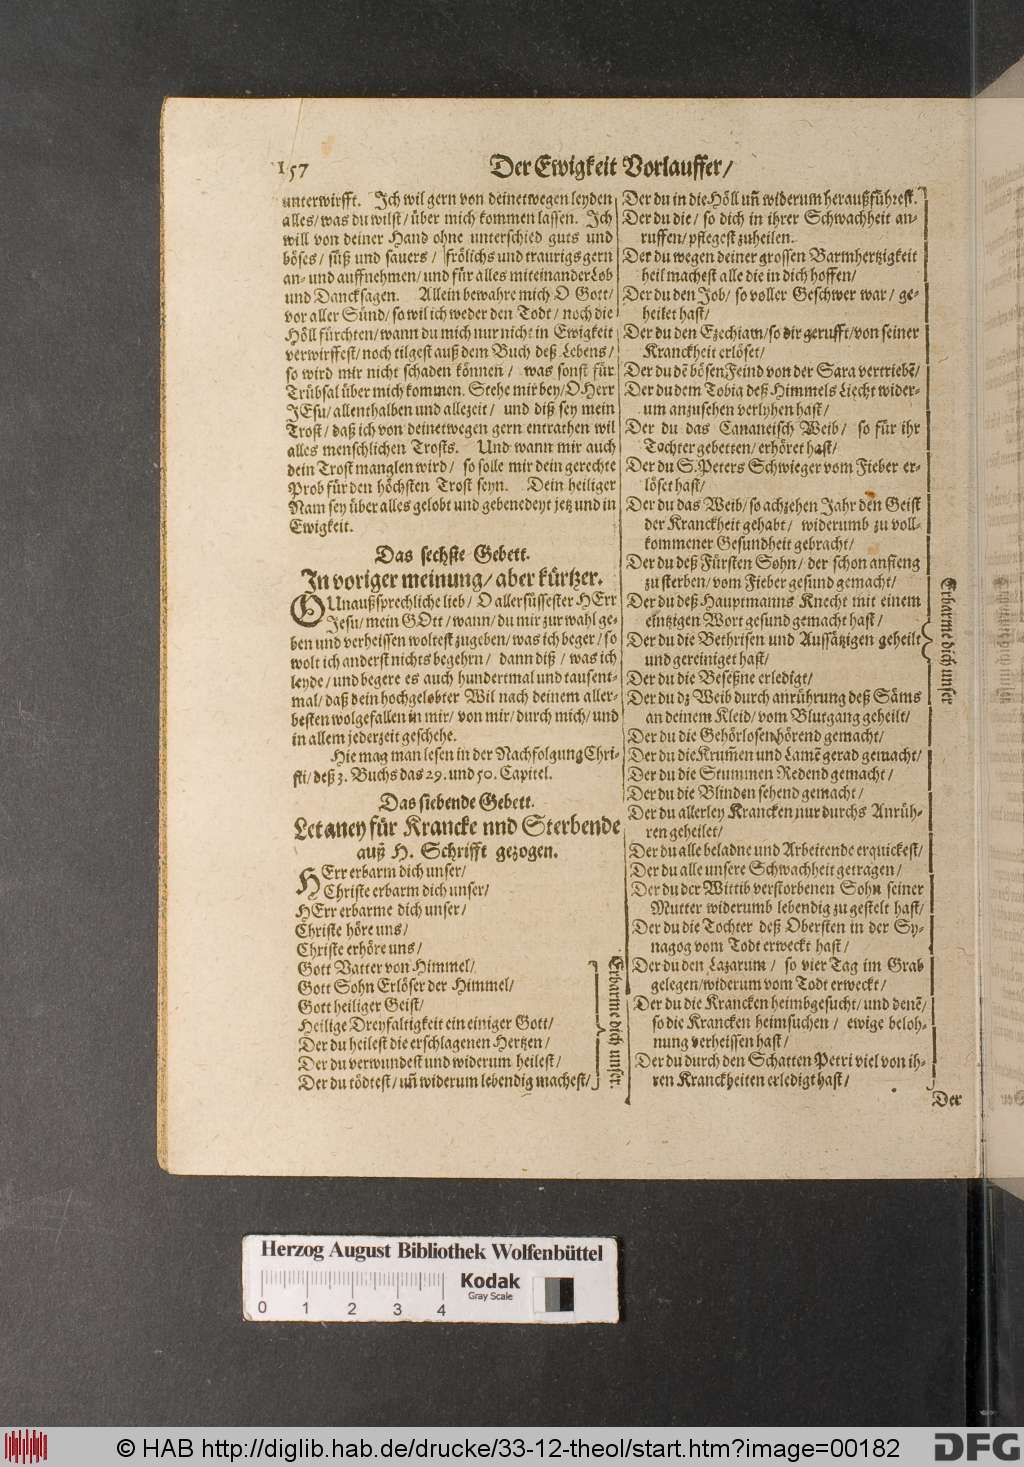 157
Der Ewigkeit Vorlauffer/
unterwirfft. Jch wil gern von deinetwegen leyden
alles/was du wilst/über mich kommen lassen. Jch
will von deiner Hand ohne unterschied guts und
böses/ süß und saurs/ frölichs und traurigs gern
an- und auffnehmen/und für alles miteinander Lob
und Dancksagen. Allein bewahre mich O Gott/
vor aller Sünd/so wil ich weder den Todt/noch die
Höll fürchten/wann du mich nur nicht in Ewigkeit
verwirffest/noch tilgest auß dem Buch deß Lebens/
so wird mir nicht schaden können/ was sonst für
Trübsal über mich kommen. Stehe mir bey/O Herr
JEsu/allenthalben und allezeit/ und diß sey mein
Trost/daß ich von deinetwegen gern entrathen wil
alles menschlichen Trosts. Und wann mir auch
dein Trost manglen wird/ so solle mir dein gerechte
Prob für den höchsten Trost seyn. Dein heiliger
Nam sey über alles gelobt und gebenedeyt jetz und in
Ewigkeit.
Das sechste Gebett.
Jn voriger meinung/aber kürtzer.
O Unaußsprechliche lieb/O allersüssester HErr
Jesu/mein GOtt/wann/du mir zur wahl ge-
ben und verheissen woltest zugeben/was ich beger/so
wolt ich anderst nichts begehrn/ dann diß/was ich
leyde/und begere es auch hundertmal und tausent-
mal/daß dein hochgelobter Wil nach deinem aller-
besten wolgefallen in mir/von mir/durch mich/und
in allem jederzeit geschehe.
Hie mag man lesen in der Nachfolgung Chri-
sti/deß 3. Buchs das 29. und 50. Capitel.
Das siebende Gebett.
Letaney für Krancke nnd Sterbende
auß H. Schrifft gezogen.
HErr erbarm dich unser/
Christe erbarm dich unser/
HErr erbarme dich unser/
Christe höre uns/
Christe erhöre uns/
Gott Vatter von Himmel/
Gott Sohn Erlöser der Himmel/
Gott heiliger Geist/
Heilige Dreyfaltigkeit ein einiger Gott/
Der du heilest die erschlagenen Hertzen/
Der du verwundest und widerum heilest/
Der du tödtest/uñ widerum lebendig machest/
Erbarme dich unser.
Der du in die Höll uñ widerum heraußführest.
Der du die/ so dich in ihrer Schwachheit an-
ruffen/pflegest zuheilen.
Der du wegen deiner grossen Barmhertzigkeit
heil machest alle die in dich hoffen/
Der du den Job/ so voller Geschwer war/ ge-
heilet hast/
Der du den Ezechiam/so dir gerufft/von seiner
Kranckheit erlöset/
Der du dẽ bösen Feind von der Sara vertriebẽ/
Der du dem Tobia deß Himmels Liecht wider-
um anzusehen verlyhen hast/
Der du das Cananeisch Weib/ so für ihr
Tochter gebetten/erhöret hast/
Der du S. Peters Schwieger vom Fieber er-
löset hast/
Der du das Weib/so achzehen Jahr den Geist
der Kranckheit gehabt/ widerumb zu voll-
kommener Gesundheit gebracht/
Der du deß Fürsten Sohn/ der schon anfieng
zu sterben/vom Fieber gesund gemacht/
Der du deß Hauptmanns Knecht mit einem
eintzigen Wort gesund gemacht hast/
Der du die Bethrisen und Aussätzigen geheilt
und gereiniget hast/
Der du die Beseßne erledigt/
Der du dz Weib durch anrührung deß Säms
an deinem Kleid/vom Blutgang geheilt/
Der du die Gehörlosen hörend gemacht/
Der du die Krum̃en und Lamẽ gerad gemacht/
Der du die Stummen Redend gemacht/
Der du die Blinden sehend gemacht/
Der du allerley Krancken nur durchs Anrüh-
ren geheilet/
Der du alle beladne und Arbeitende erquickest/
Der du alle unsere Schwachheit getragen/
Der du der Wittib verstorbenen Sohn seiner
Mutter widerumb lebendig zugestelt hast/
Der du die Tochter deß Obersten in der Sy-
nagog vom Todt erweckt hast/
Der du den Lazarum/ so vier Tag im Grab
gelegen/widerum vom Todt erweckt/
Der du die Krancken heimbgesucht/und denẽ/
so die Krancken heimsuchen/ ewige beloh-
nung verheissen hast/
Der du durch den Schatten Petri viel von ih-
ren Kranckheiten erledigt hast/
Erbarme dich unser
Der
Herzog August Bibliothek Wolfenbüttel
0 1 2 3 4
Kodak
Gray Scale
© HAB http://diglib.hab.de/drucke/33-12-theol/start.htm?image=00182
DFG